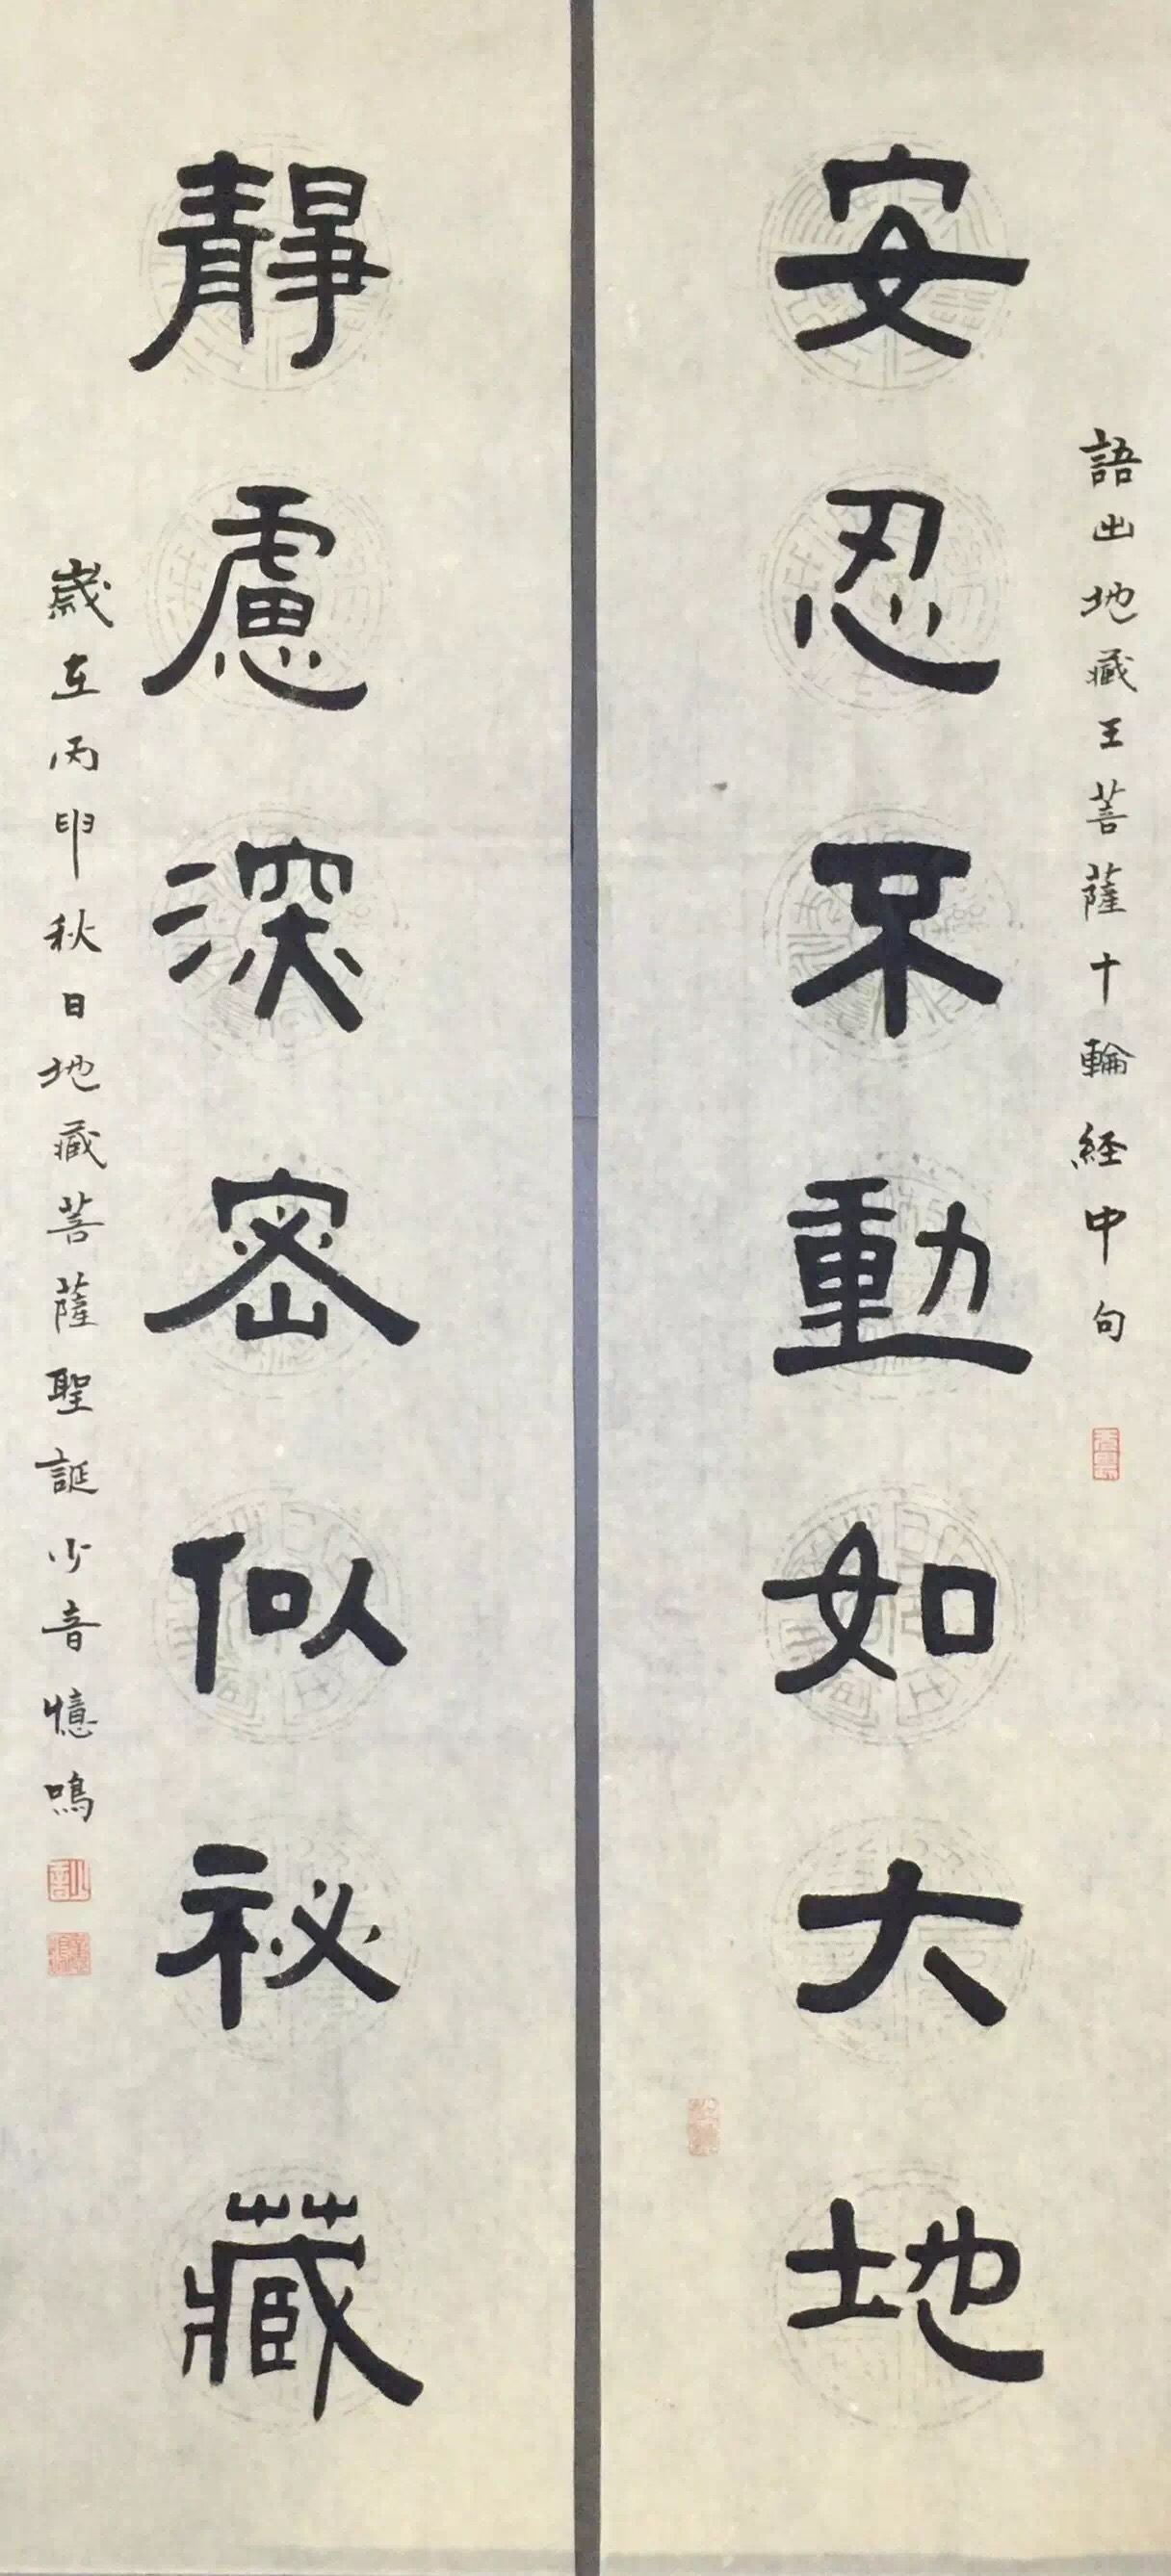 語出地藏王菩薩十輪經中句
安忍不動如大地
靜慮深密似祕藏
歲在丙申秋日地藏菩薩聖誕少音憶鳴